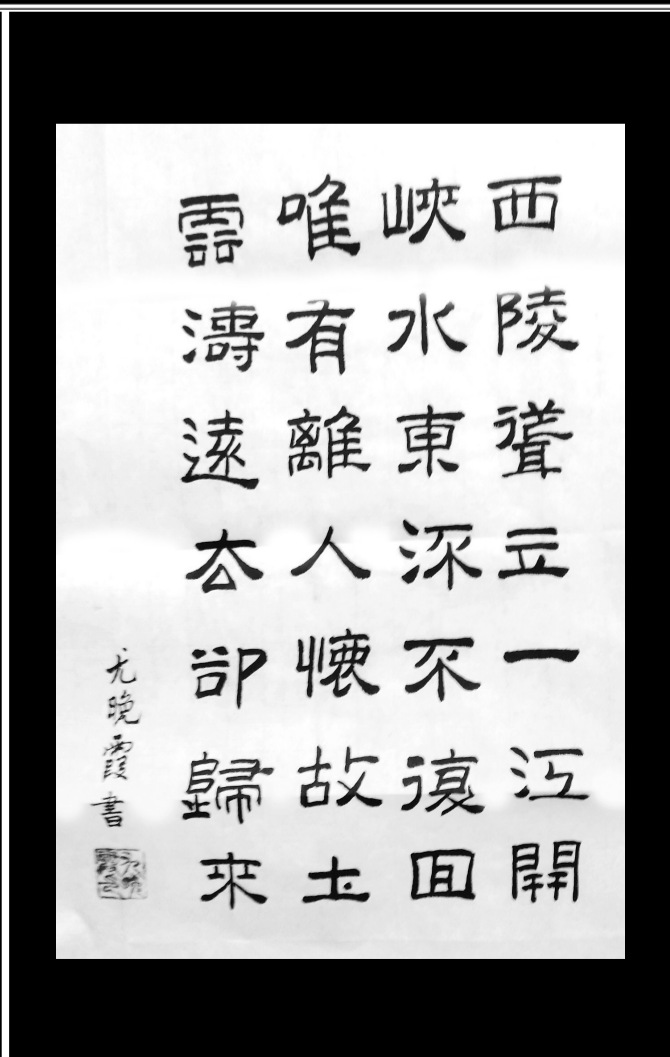 西陵聳立一江開
峽水東流不復回
唯有離人懷故土
雲濤遠去卻歸來
尤晚霞書